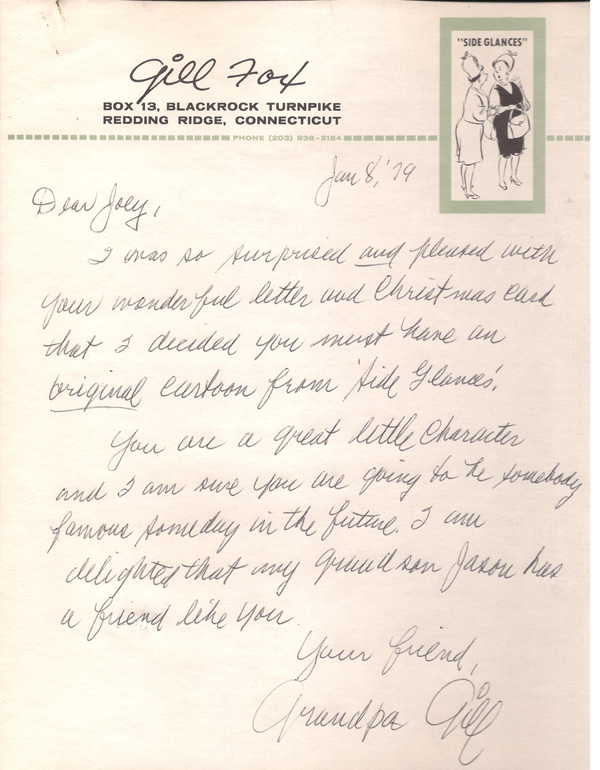 Gill Fox
BOX 13, BLACKROCK TURNPIKE
REDDING RIDGE, CONNECTICUT
PHONE (203) 938-2164
"SIDE GLANCES"
Jan 8, '79
Dear Joey,
I was so surprised and pleased with
your wonderful letter and Christmas card
that I decided you must have an
original cartoon from 'Side Glances'.
You are a great little character
and I am sure you are going to be somebody
famous someday in the future. I am
delighted that my grandson Jason has
a friend like you.
Your friend,
Grandpa Gill